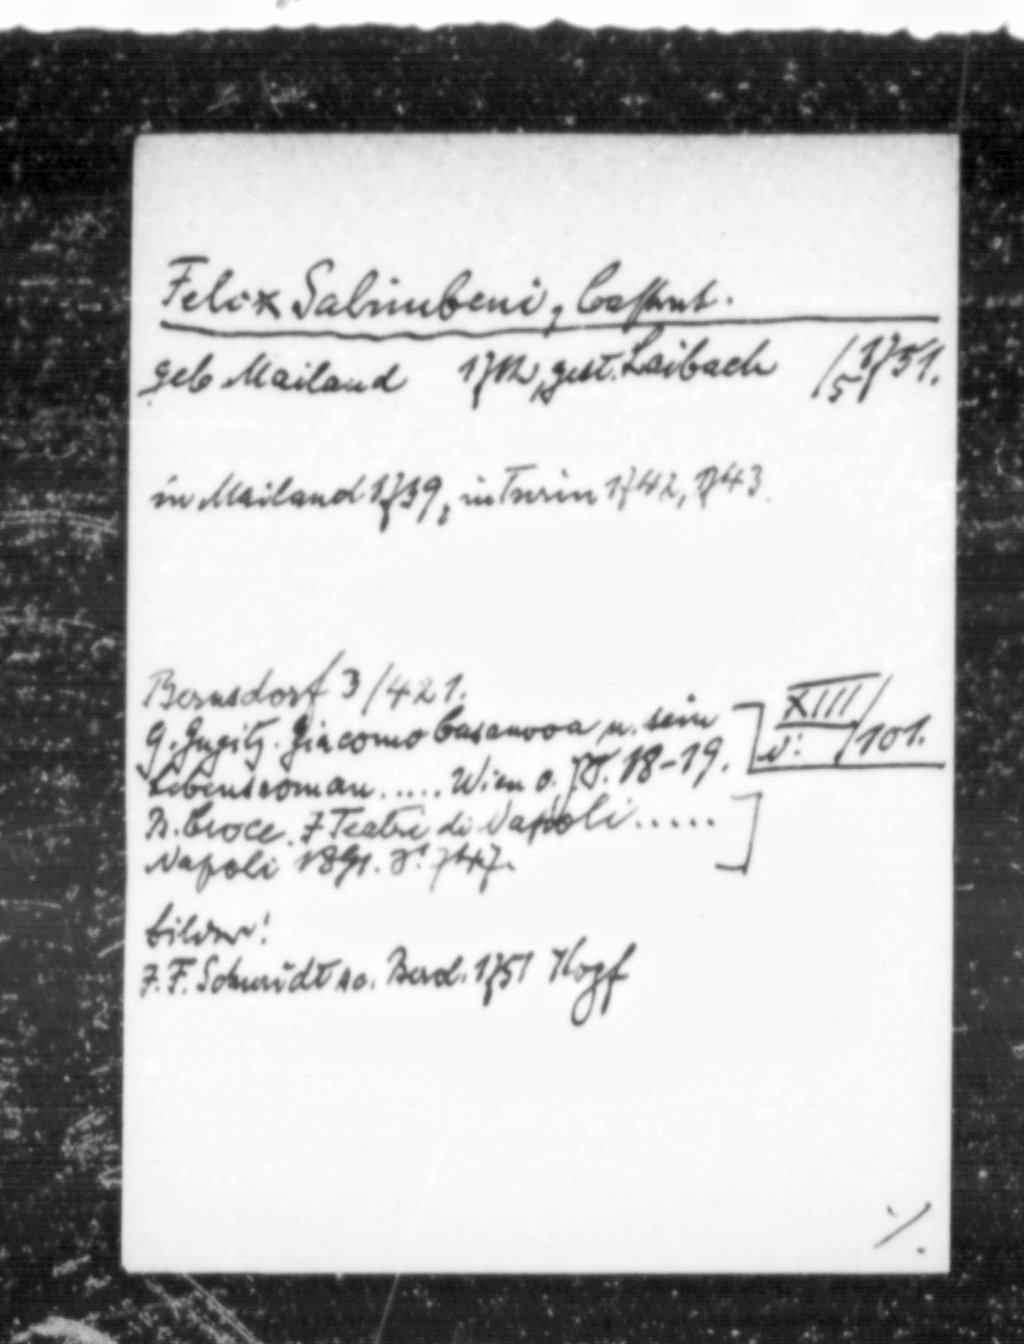 Felix Salimbeni, Castrat.
geb Mailand 1712, gest. Laibach /5 1751.
in Mailand 1739, in Turin 1742, 1743.
Bernsdorf 3/421.
G. Gugitz. Giacomo Casanova u. sein
Lebensroman ..... Wien o. J. S. 18-19.
XIII/101.
B. Croce. I Teatri di Napoli .....
Napoli 1891. S. 747.
bilder!
J. F. Schmidt sc. Berol. 1751